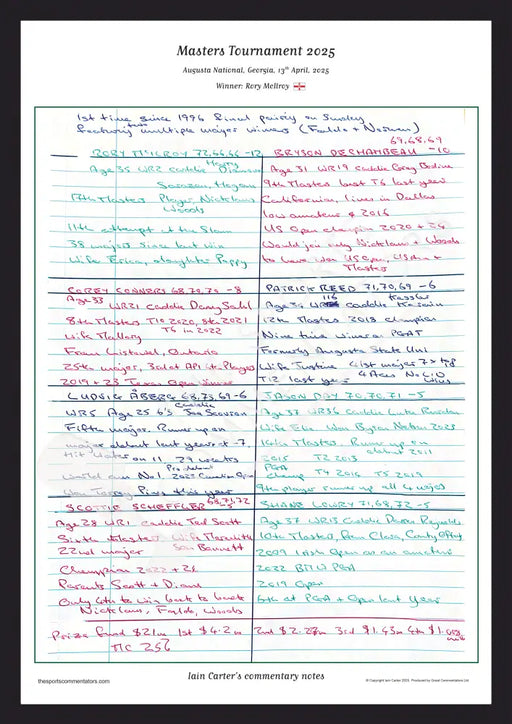 Masters Tournament 2025
Augusta National, Georgia, 13th April, 2025
Winner: Rory McIlroy
1st time since 1996 final pairing on Sunday
featuring multiple major winners (Faldo + Norman)
RORY McILROY 72,66,66 -12
Age 35 WR2 caddie Harry Diamond
Sarazen, Hogan
17th Masters Player, Nicklaus
Woods
11th attempt at the Slam
38 majors since last win
Wife Erica, daughter Poppy
69,68,69
BRYSON DECHAMBEAU -10
Age 31 WR19 caddie Greg Bodine
9th Masters best T6 last year
Californian, lives in Dallas
low amateur @ 2016
US Open champion 2020 + 24
Would join only Nicklaus + Woods
to have won US Open, US Am +
Masters
COREY CONNERS 68,70,70 -8
Age 33 WR21 caddie Danny Sahl
8th Masters T10 2020, 8th 2021
T6 in 2022
Wife Mallory
From Listowel, Ontario
25th major, 3 at API + Players
2019 + 23 Texas Open winner
PATRICK REED 71,70,69 -6
Age 34 WR 116 caddie Kessler Karain
12th Masters 2018 champion
Nine time winner on PGAT
Formerly Augusta State Uni
Wife Justine 41st major 7 x top
T12 last year 4 Aces No LIV
wins
LUDVIG ÅBERG 68,73,69 -6
WR5 Age 25 caddie Joe Skovron
Fifth major. Runner up on
major debut last year at -7
Hit water on 11
World am No1. Pro debut 2023 Canadian Open
Won Torrey Pines this year
JASON DAY 70,70,71 -5
Age 37 WR36 caddie Luke Reardon
Wife Ellie Won Byron Nelson 2023
14th Masters. Runner up on
debut 2011
2015 T2 2013
PGA
champ T4 2016 T5 2019
9th player runner up all 4 majors
SCOTTIE SCHEFFLER 68,71,72 -5
Age 28 WR1 caddie Ted Scott
Sixth Masters Wife Meredith
22nd major Son Bennett
Champion 2022 + 24
Parents Scott + Diane
Only 4th to win back to back
Nicklaus, Faldo, Woods
SHANE LOWRY 71,68,72 -5
Age 37 WR13 caddie Darren Reynolds
10th Masters, from Clara, County Offaly
2009 Irish Open as an amateur
2022 BMW PGA
2019 Open
6th at PGA + Open last year
Prize fund $21m 1st $4.2m 2nd $2.27m 3rd $1.43m 4th $1.008
mil
TIC 256
thesportscommentators.com
Iain Carter's commentary notes
© Copyright Iain Carter 2025. Produced by Great Commentaries Ltd